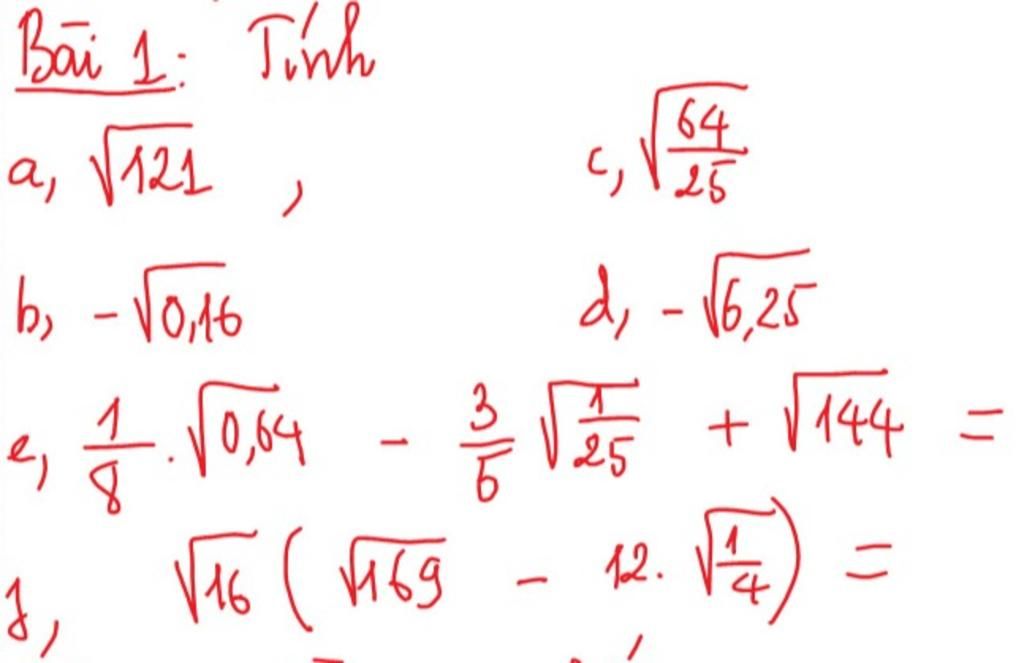 Bài 1: Tính
a, √121 , c, √(64/25)
b, -√0,16 d, -√6,25
e, 1/8 . √0,64 - 3/5 √(1/25) + √144 =
f, √16 ( √169 - 12. √(1/4) ) =